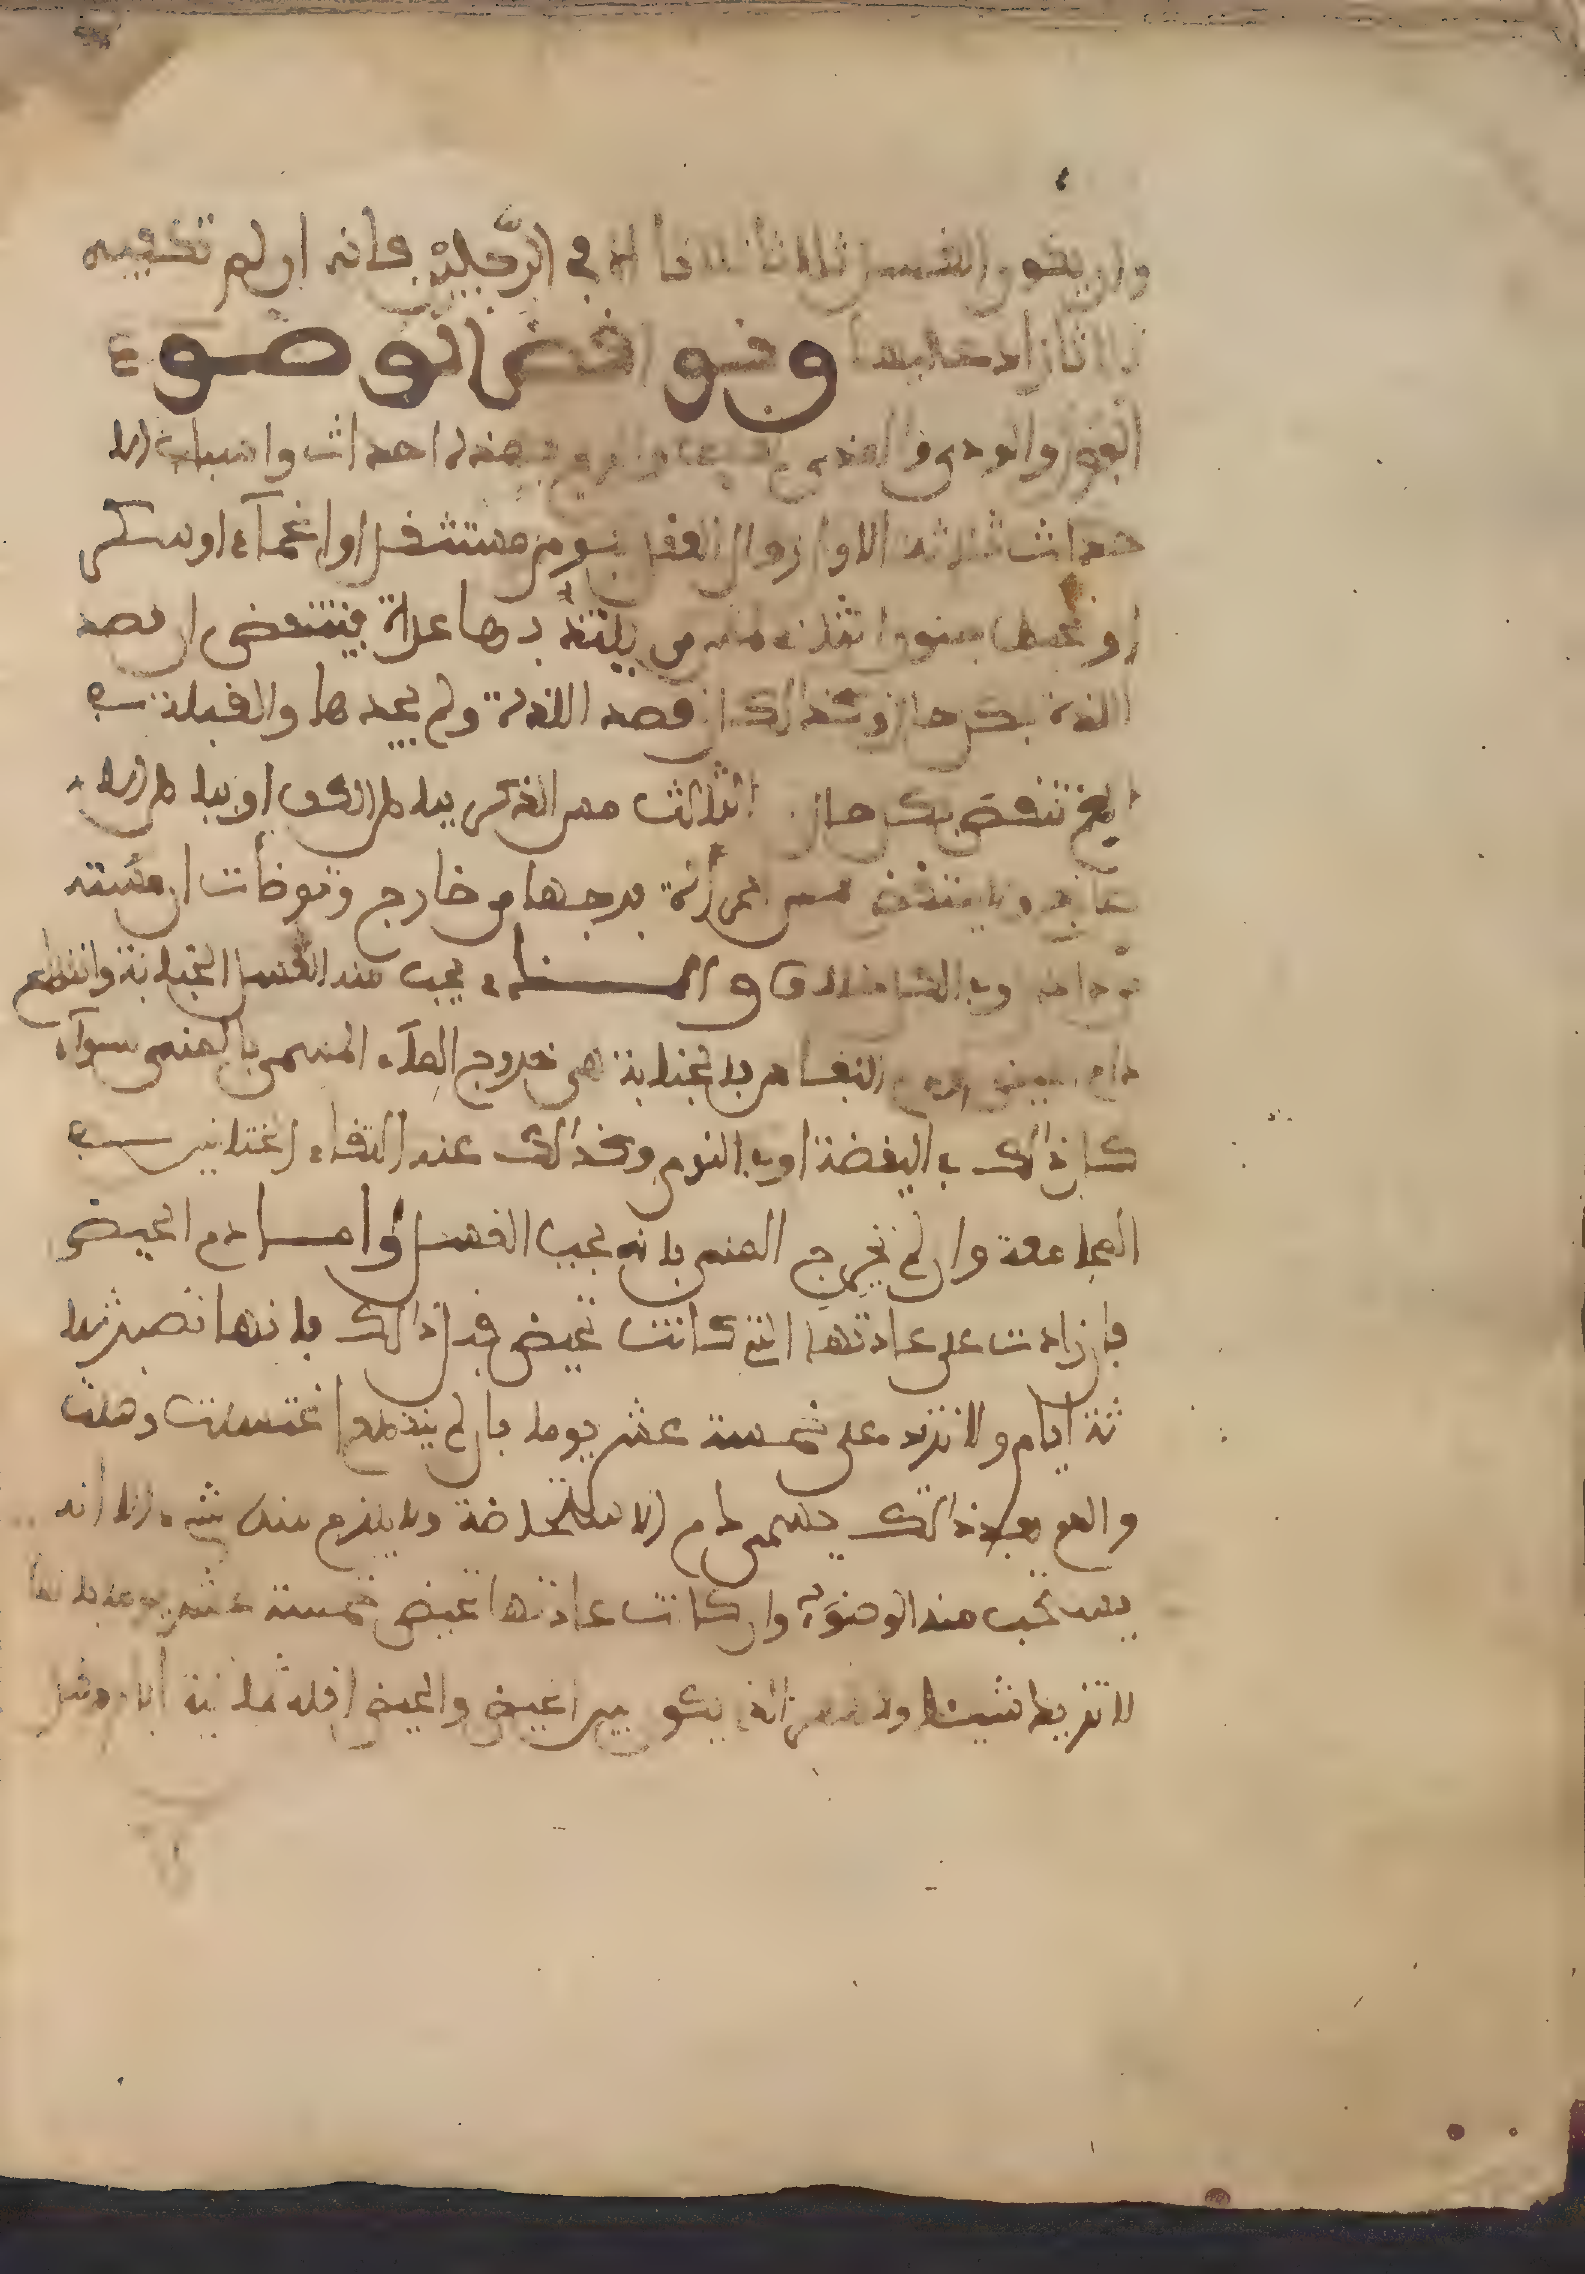 وان يكون الغسل ثلاثا ثلاثا الا في الرّجلين فانه ان لم تكفيه
ثلاثا زاد عليها ونواقض الوضوء
البول والودي والمذي والريح فهذه احداث واسباب الا
حداث ثلاثة الاول زوال العقل بنوم مستثقل او اغماء او سكر
او من يلتذ بها عادة فينتقض ان قصد
اللذة بكل حال وكذالك ان قصد اللذة ولم يجدها والقبلة في
الفم تنقض بكل حال الثالث مس الذكر بباطن الكف او بباطن الا
صابع ولا ينتقض مس امرأة فرجها من خارج وتوضأت ان مسته
من داخله وبه الشك والماء يجب منه الغسل الجنابة وانقطاع
دم الحيض ودم النفاس فالجنابة هي خروج الماء المسمى بالمني سواء
كان ذالك في اليقضة او في النوم وكذالك عند التقاء اختانين في
المجامعة وان لم يخرج المني فانه يجب الغسل واما دم الحيض
فان زادت على عادتها التي كانت تحيض قبل ذالك فانها تصبر ثلا
ثة ايام ولا تزيد على خمسة عشر يوما فان لم ينقطع اغتسلت وصلت
والدم بعد ذالك يسمى دم الاستحاضة ولا يلزم منه شيء الا انه
يستحب منه الوضوء وان كانت عادتها تحيض خمسة عشر يوما فانها
لا تزيد شيئا والطهر الذي يكون بين الحيض والحيض اقله ثمانية ايام وقيل